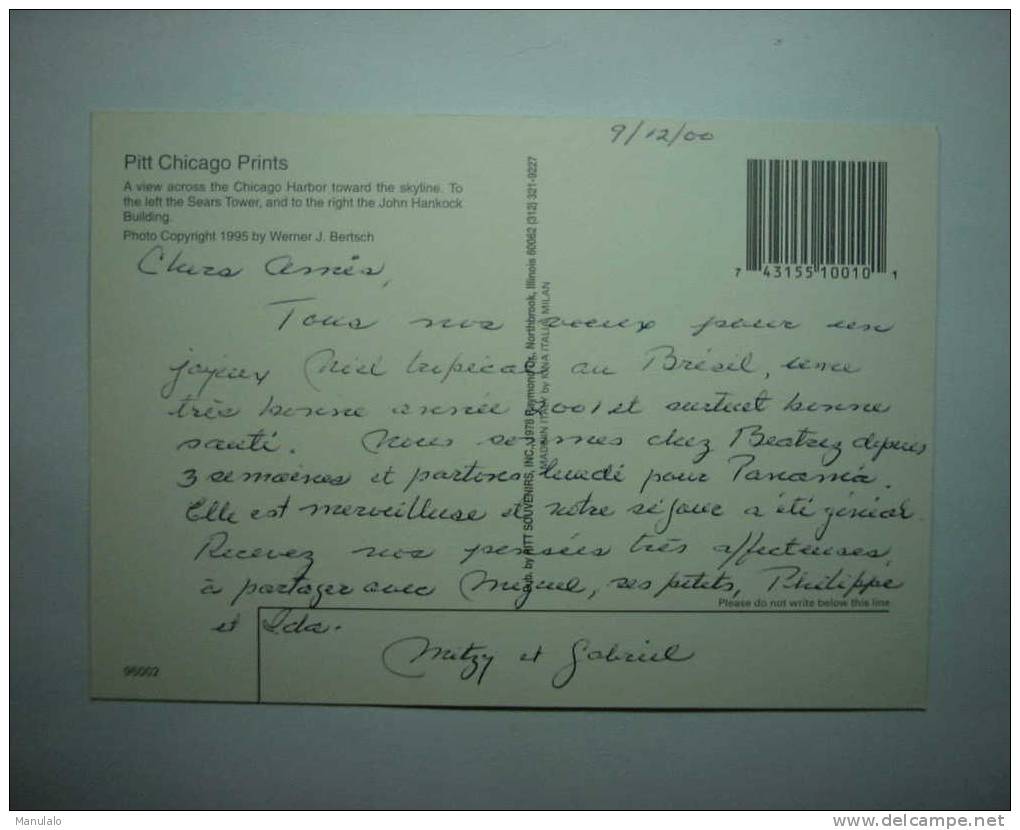 9/12/00
Pitt Chicago Prints
A view across the Chicago Harbor toward the skyline. To
the left the Sears Tower, and to the right the John Hankock
Building.
Photo Copyright 1995 by Werner J. Bertsch
7 43155 10010 1
Pub. by PITT SOUVENIRS, INC., 1978 Raymond Dr. Northbrook, Illinois 60062 (312) 321-9227
MADE IN ITALY by KINA ITALIA MILAN
Chers Amis,
Tous nos voeux pour un
joyeux Noël tropical au Brésil, une
très bonne année 2001 et surtout bonne
santé. Nous sommes chez Beatrez depuis
3 semaines et partons lundi pour Panamá.
Elle est merveilleuse et notre séjour a été génial.
Recevez nos pensées très affectueuses,
à partager avec Miguel, ses petits, Philippe
Please do not write below this line
et Ida.
Mitzy et Gabriel
Manulalo
delcampe.net